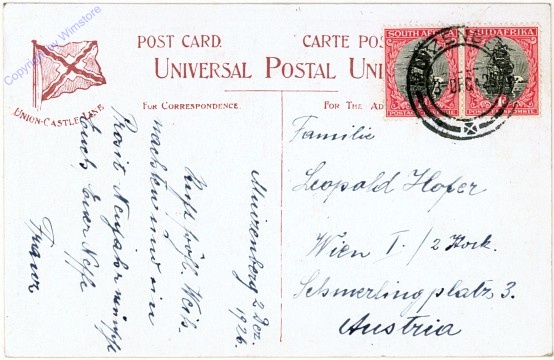 Copyright by Wimstore
UNION-CASTLE LINE
POST CARD.
CARTE POS
UNIVERSAL POSTAL UNI
FOR CORRESPONDENCE.
FOR THE AD
SOUTH AFRICA
SUIDAFRIKA
DEC
Muizenberg 2 Dez.
1926.
fröhl. Weih-
nachten und ein
Prosit Neujahr wünscht
Euch Euer Neffe
Franz
Familie
Leopold Hofer
Wien I. / 2 Stock.
Schmerlingplatz 3.
Austria